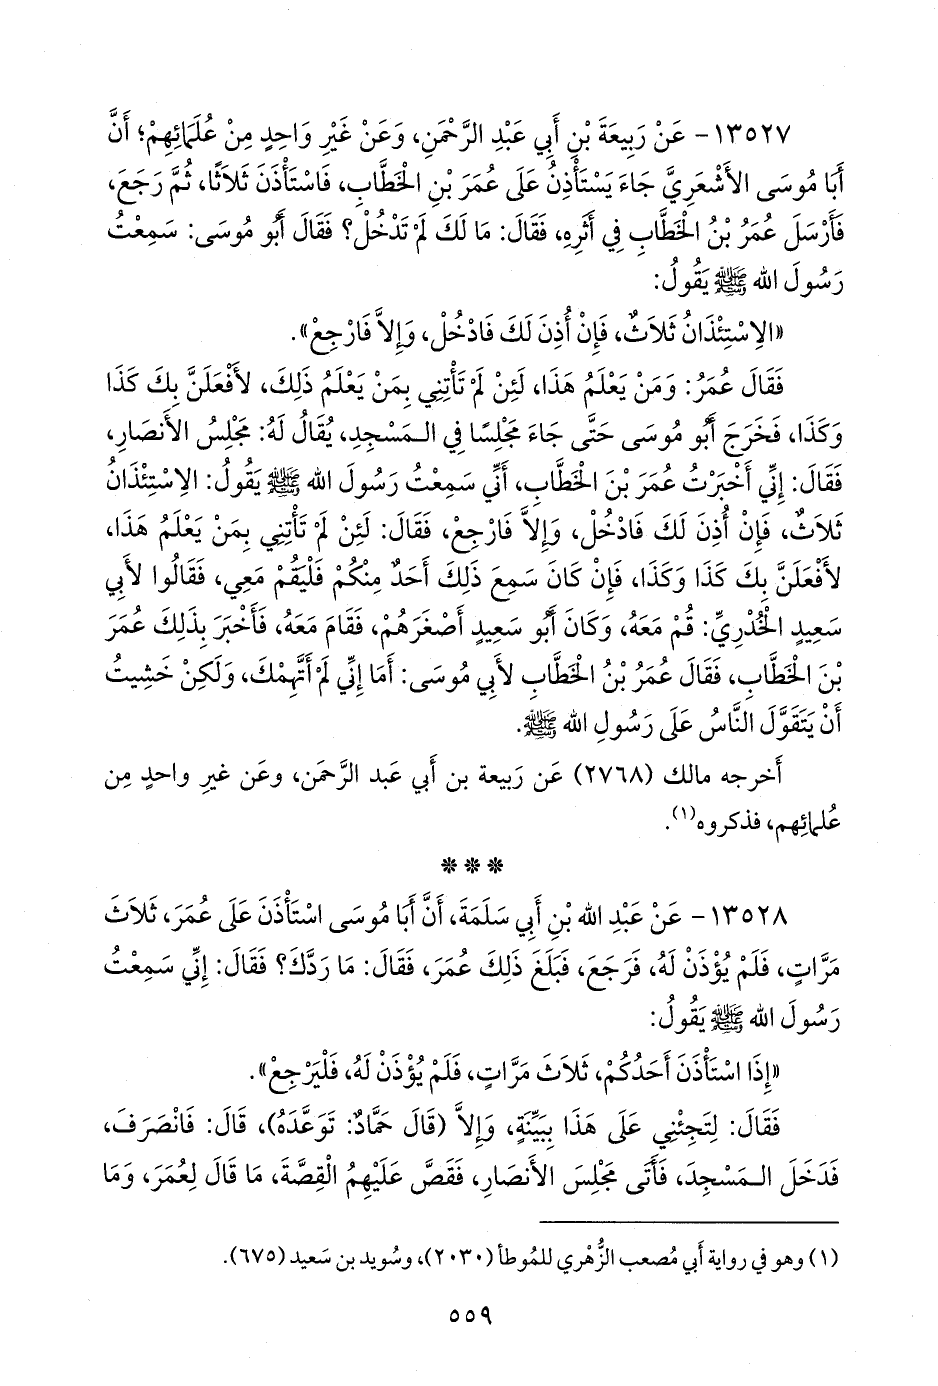 ١٣٥٢٧- عَنْ رَبِيعَةَ بْنِ أَبِي عَبْدِ الرَّحْمَنِ، وَعَنْ غَيْرِ وَاحِدٍ مِنْ عُلَمَائِهِمْ؛ أَنَّ
أَبَا مُوسَى الأَشْعَرِيَّ جَاءَ يَسْتَأْذِنُ عَلَى عُمَرَ بْنِ الخَطَّابِ، فَاسْتَأْذَنَ ثَلاَثًا، ثُمَّ رَجَعَ،
فَأَرْسَلَ عُمَرُ بْنُ الخَطَّابِ فِي أَثَرِهِ، فَقَالَ: مَا لَكَ لَمْ تَدْخُلْ؟ فَقَالَ أَبُو مُوسَى: سَمِعْتُ
رَسُولَ الله ﷺ يَقُولُ:
«الاِسْتِئْذَانُ ثَلاَثٌ، فَإِنْ أُذِنَ لَكَ فَادْخُلْ، وَإِلاَّ فَارْجِعْ».
فَقَالَ عُمَرُ: وَمَنْ يَعْلَمُ هَذَا، لَئِنْ لَمْ تَأْتِنِي بِمَنْ يَعْلَمُ ذَلِكَ، لأَفْعَلَنَّ بِكَ كَذَا
وَكَذَا، فَخَرَجَ أَبُو مُوسَى حَتَّى جَاءَ مَجْلِسًا فِي الـمَسْجِدِ، يُقَالُ لَهُ: مَجْلِسُ الأَنصَارِ،
فَقَالَ: إِنِّي أَخْبَرْتُ عُمَرَ بْنَ الخَطَّابِ، أَنِّي سَمِعْتُ رَسُولَ الله ﷺ يَقُولُ: الاِسْتِئْذَانُ
ثَلاَثٌ، فَإِنْ أُذِنَ لَكَ فَادْخُلْ، وَإِلاَّ فَارْجِعْ، فَقَالَ: لَئِنْ لَمْ تَأْتِنِي بِمَنْ يَعْلَمُ هَذَا،
لأَفْعَلَنَّ بِكَ كَذَا وَكَذَا، فَإِنْ كَانَ سَمِعَ ذَلِكَ أَحَدٌ مِنْكُمْ فَلْيَقُمْ مَعِي، فَقَالُوا لأَبِي
سَعِيدٍ الخُدْرِيِّ: قُمْ مَعَهُ، وَكَانَ أَبُو سَعِيدٍ أَصْغَرَهُمْ، فَقَامَ مَعَهُ، فَأَخْبَرَ بِذَلِكَ عُمَرَ
بْنَ الخَطَّابِ، فَقَالَ عُمَرُ بْنُ الخَطَّابِ لأَبِي مُوسَى: أَمَا إِنِّي لَمْ أَتَّهِمْكَ، وَلَكِنْ خَشِيتُ
أَنْ يَتَقَوَّلَ النَّاسُ عَلَى رَسُولِ الله ﷺ.
أَخرجه مالك (٢٧٦٨) عَن رَبيعة بن أَبي عَبد الرَّحمَن، وعَن غيرِ واحدٍ مِن
عُلمائِهم، فذكروه(١).
* * *
١٣٥٢٨- عَنْ عَبْدِ الله بْنِ أَبِي سَلَمَةَ، أَنَّ أَبَا مُوسَى اسْتَأْذَنَ عَلَى عُمَرَ، ثَلاَثَ
مَرَّاتٍ، فَلَمْ يُؤْذَنْ لَهُ، فَرَجَعَ، فَبَلَغَ ذَلِكَ عُمَرَ، فَقَالَ: مَا رَدَّكَ؟ فَقَالَ: إِنِّي سَمِعْتُ
رَسُولَ الله ﷺ يَقُولُ:
«إِذَا اسْتَأْذَنَ أَحَدُكُمْ، ثَلاَثَ مَرَّاتٍ، فَلَمْ يُؤْذَنْ لَهُ، فَلْيَرْجِعْ».
فَقَالَ: لِتَجِئْنِي عَلَى هَذَا بِبَيِّنَةٍ، وَإِلاَّ (قَالَ حَمَّادٌ: تَوَعَّدَهُ)، قَالَ: فَانْصَرَفَ،
فَدَخَلَ الـمَسْجِدَ، فَأَتَى مَجْلِسَ الأَنصَارِ، فَقَصَّ عَلَيْهِمُ الْقِصَّةَ، مَا قَالَ لِعُمَرَ، وَمَا
(١) وهو في رواية أَبي مُصعب الزُّهْري للمُوطأ (٢٠٣٠)، وسُويد بن سَعيد (٦٧٥).
٥٥٩